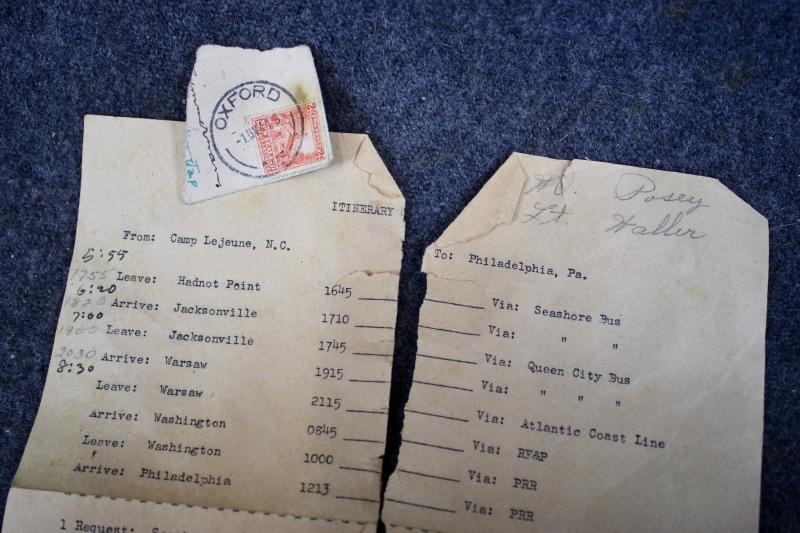 OXFORD
ITINERARY
From: Camp Lejeune, N.C.
5:55
1755 Leave: Hadnot Point 1645
6:20
1820 Arrive: Jacksonville 1710
7:00
1900 Leave: Jacksonville 1745
2030 Arrive: Warsaw 1915
8:30
Leave: Warsaw 2115
Arrive: Washington 0845
Leave: Washington 1000
Arrive: Philadelphia 1213
1 Request:
Posey
Lt Waller
To: Philadelphia, Pa.
Via: Seashore Bus
Via: " "
Via: Queen City Bus
Via: " " "
Via: Atlantic Coast Line
Via: RF&P
Via: PRR
Via: PRR